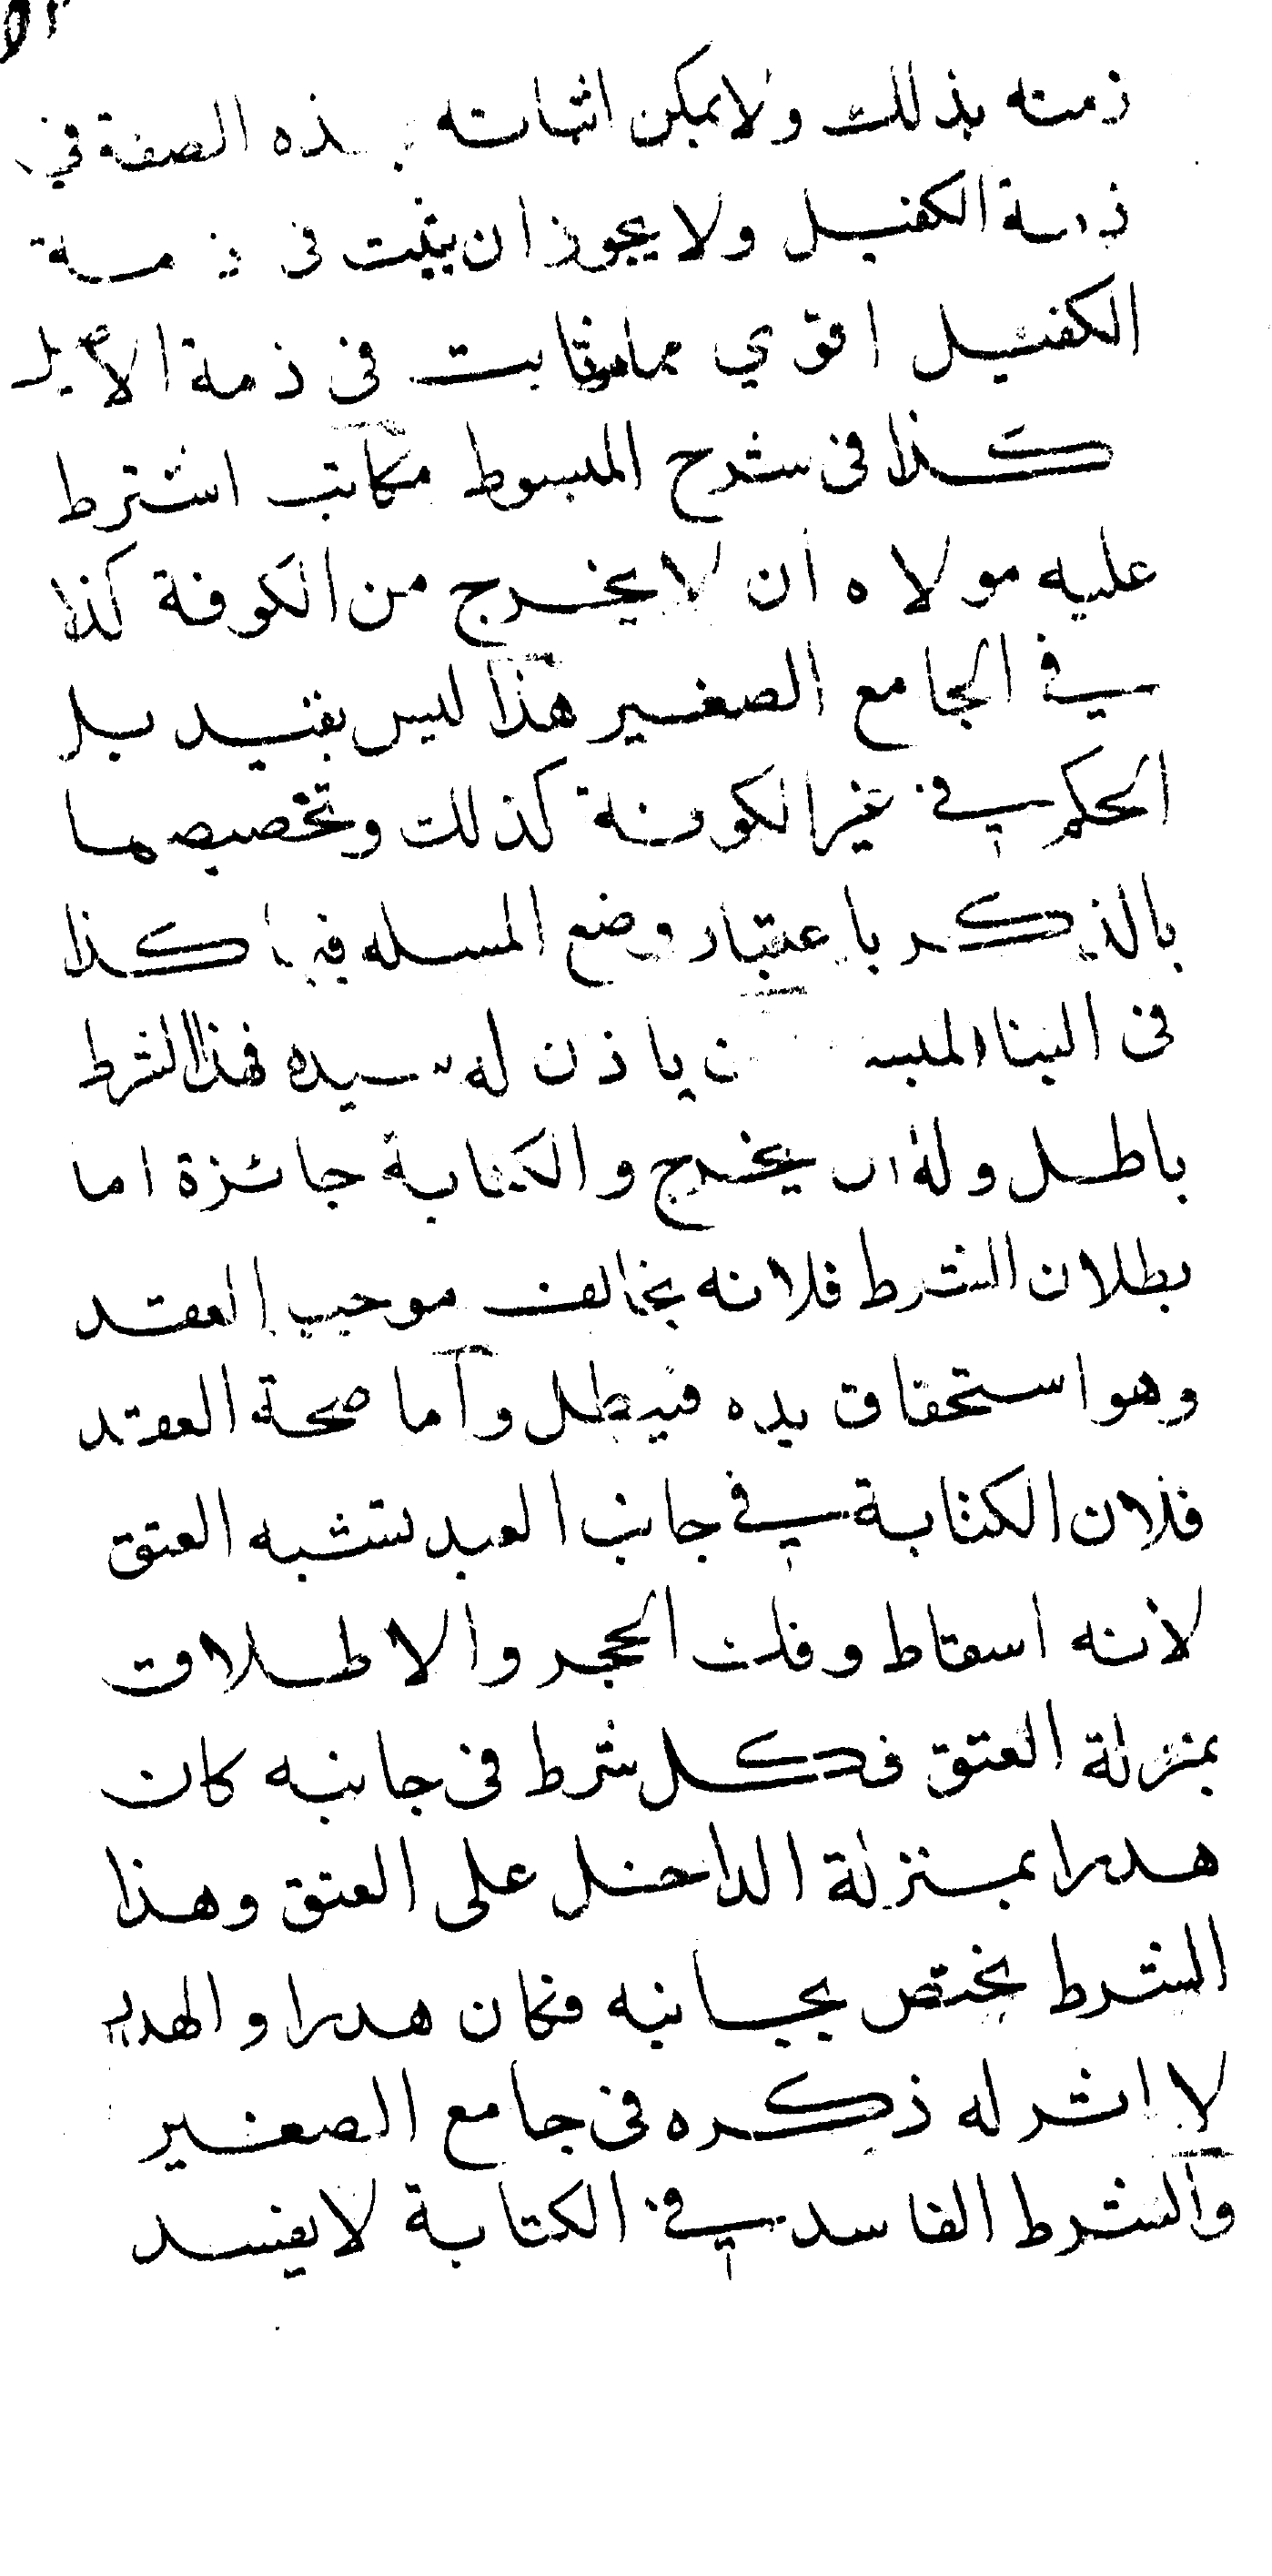 ذمته بذلك ولا يمكن اثباته بهذه الصفة في
ذمة الكفيل ولا يجوز ان يثبت في ذمة
الكفيل اقوي مما ثابت في ذمة الأصيل
كذا في شرح المبسوط مكاتب اشترط
عليه مولاه ان لا يخرج من الكوفة كذا
في الجامع الصغير هذا ليس بقيد بل
الحكم في غير الكوفة كذلك وتخصيصها
بالذكر باعتبار وضع المسله فيها كذا
في ياذن له سيده فهذا الشرط
باطل وله ان يخرج والكتابة جائزة اما
بطلان الشرط فلانه يخالف موجب العقد
وهو استحقاق يده فيبطل واما صحة العقد
فلان الكتابة في جانب العبد تشبه العتق
لانه اسقاط وفك الحجر والاطلاق
بمنزلة العتق فكل شرط في جانبه كان
هدرا بمنزلة الداخل على العتق وهذا
الشرط يختص بجانبه فكان هدرا والهدر
لا اثر له ذكره في جامع الصغير
والشرط الفاسد في الكتابة لا يفسد